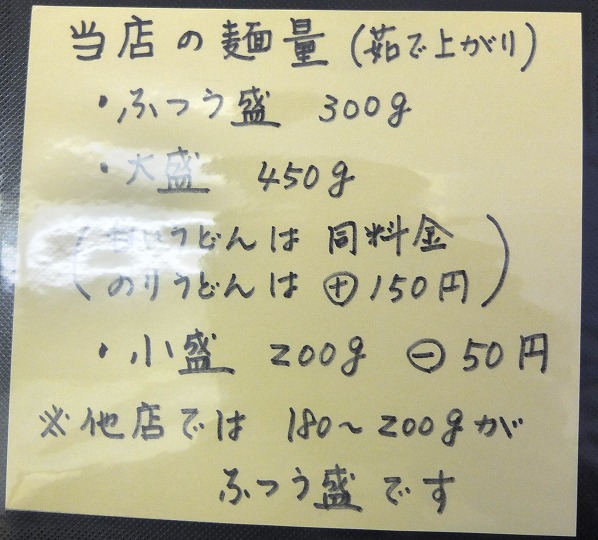 当店の麺量(茹で上がり)
・ふつう盛 300g
・大盛 450g
(うどんは 同料金
のりうどんは ⊕150円)
・小盛 200g ⊖50円
※他店では 180～200gが
ふつう盛です